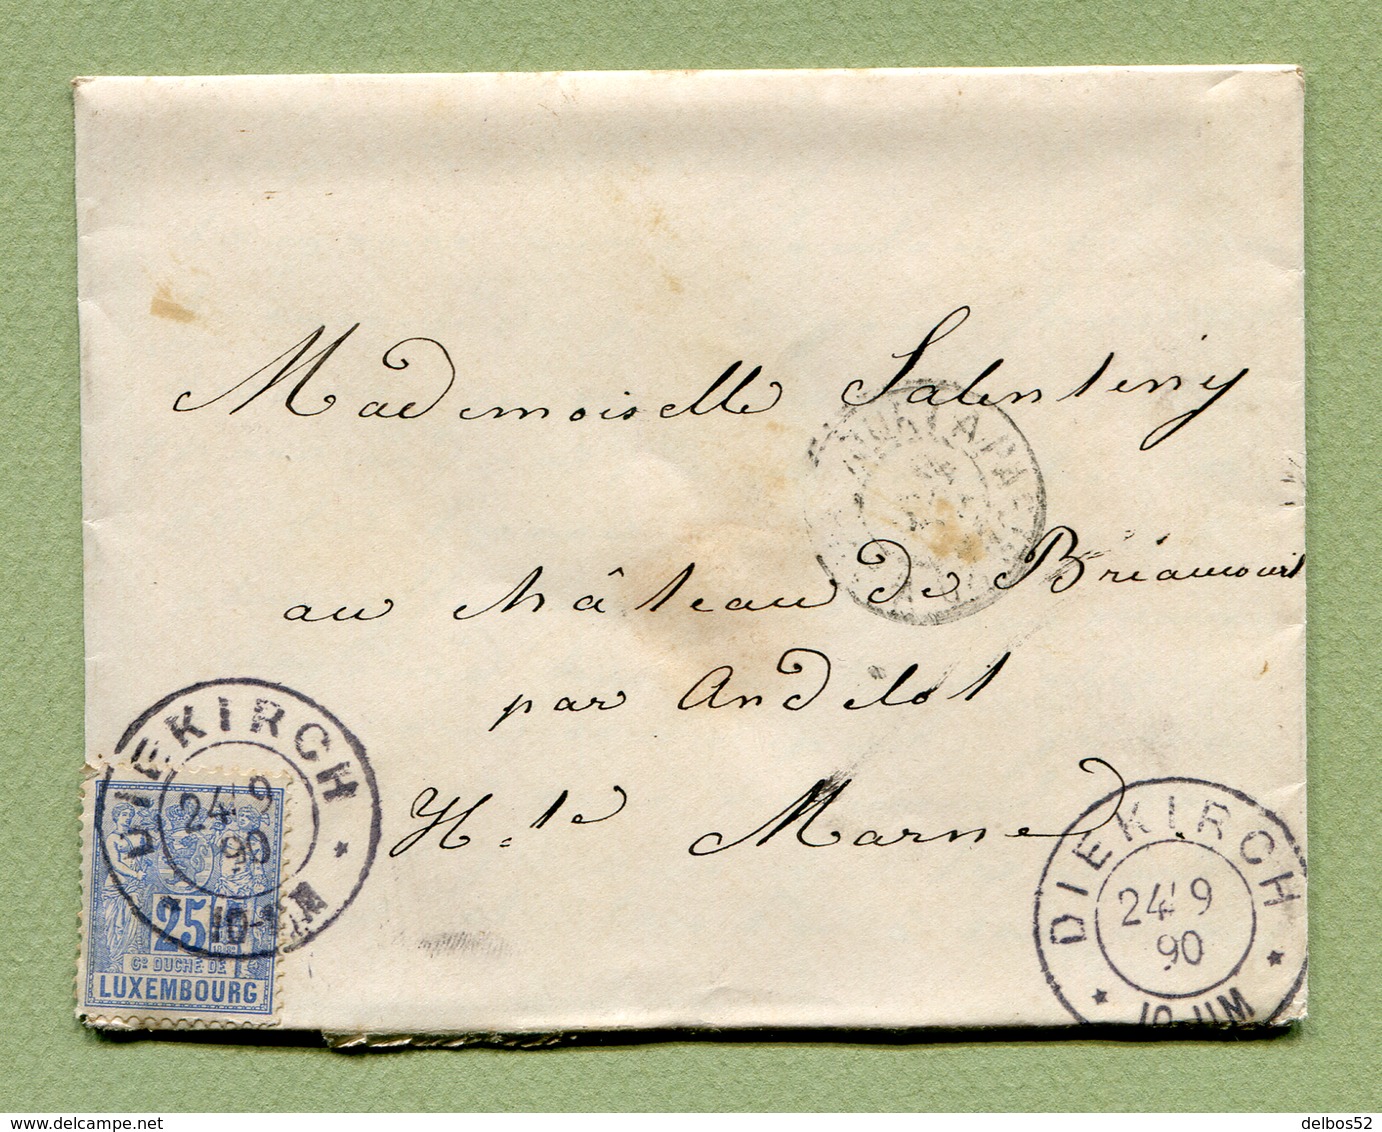 Mademoiselle Salentiny
au château de Briaucourt
par Andelot
Hte Marne
DIEKIRCH
24 9
90
25
Gd DUCHÉ DE
LUXEMBOURG
DIEKIRCH
24 9
90
10-11M
delbos52